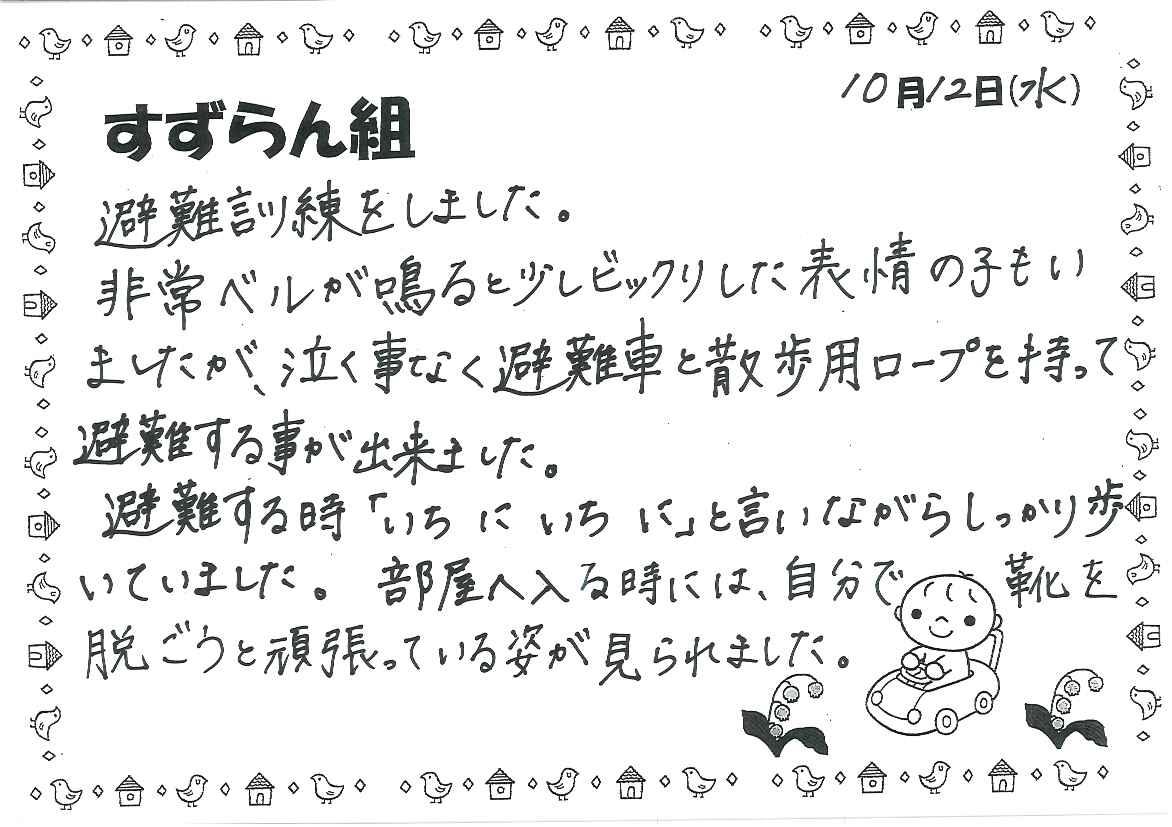 10月12日(水)
すずらん組
避難訓練をしました。
非常ベルが鳴ると少しビックリした表情の子もい
ましたが、泣く事なく避難車と散歩用ロープを持って
避難する事が出来ました。
避難する時「いち に いち に」と言いながらしっかり歩
いていました。 部屋へ入る時には、自分で 靴を
脱ごうと頑張っている姿が見られました。